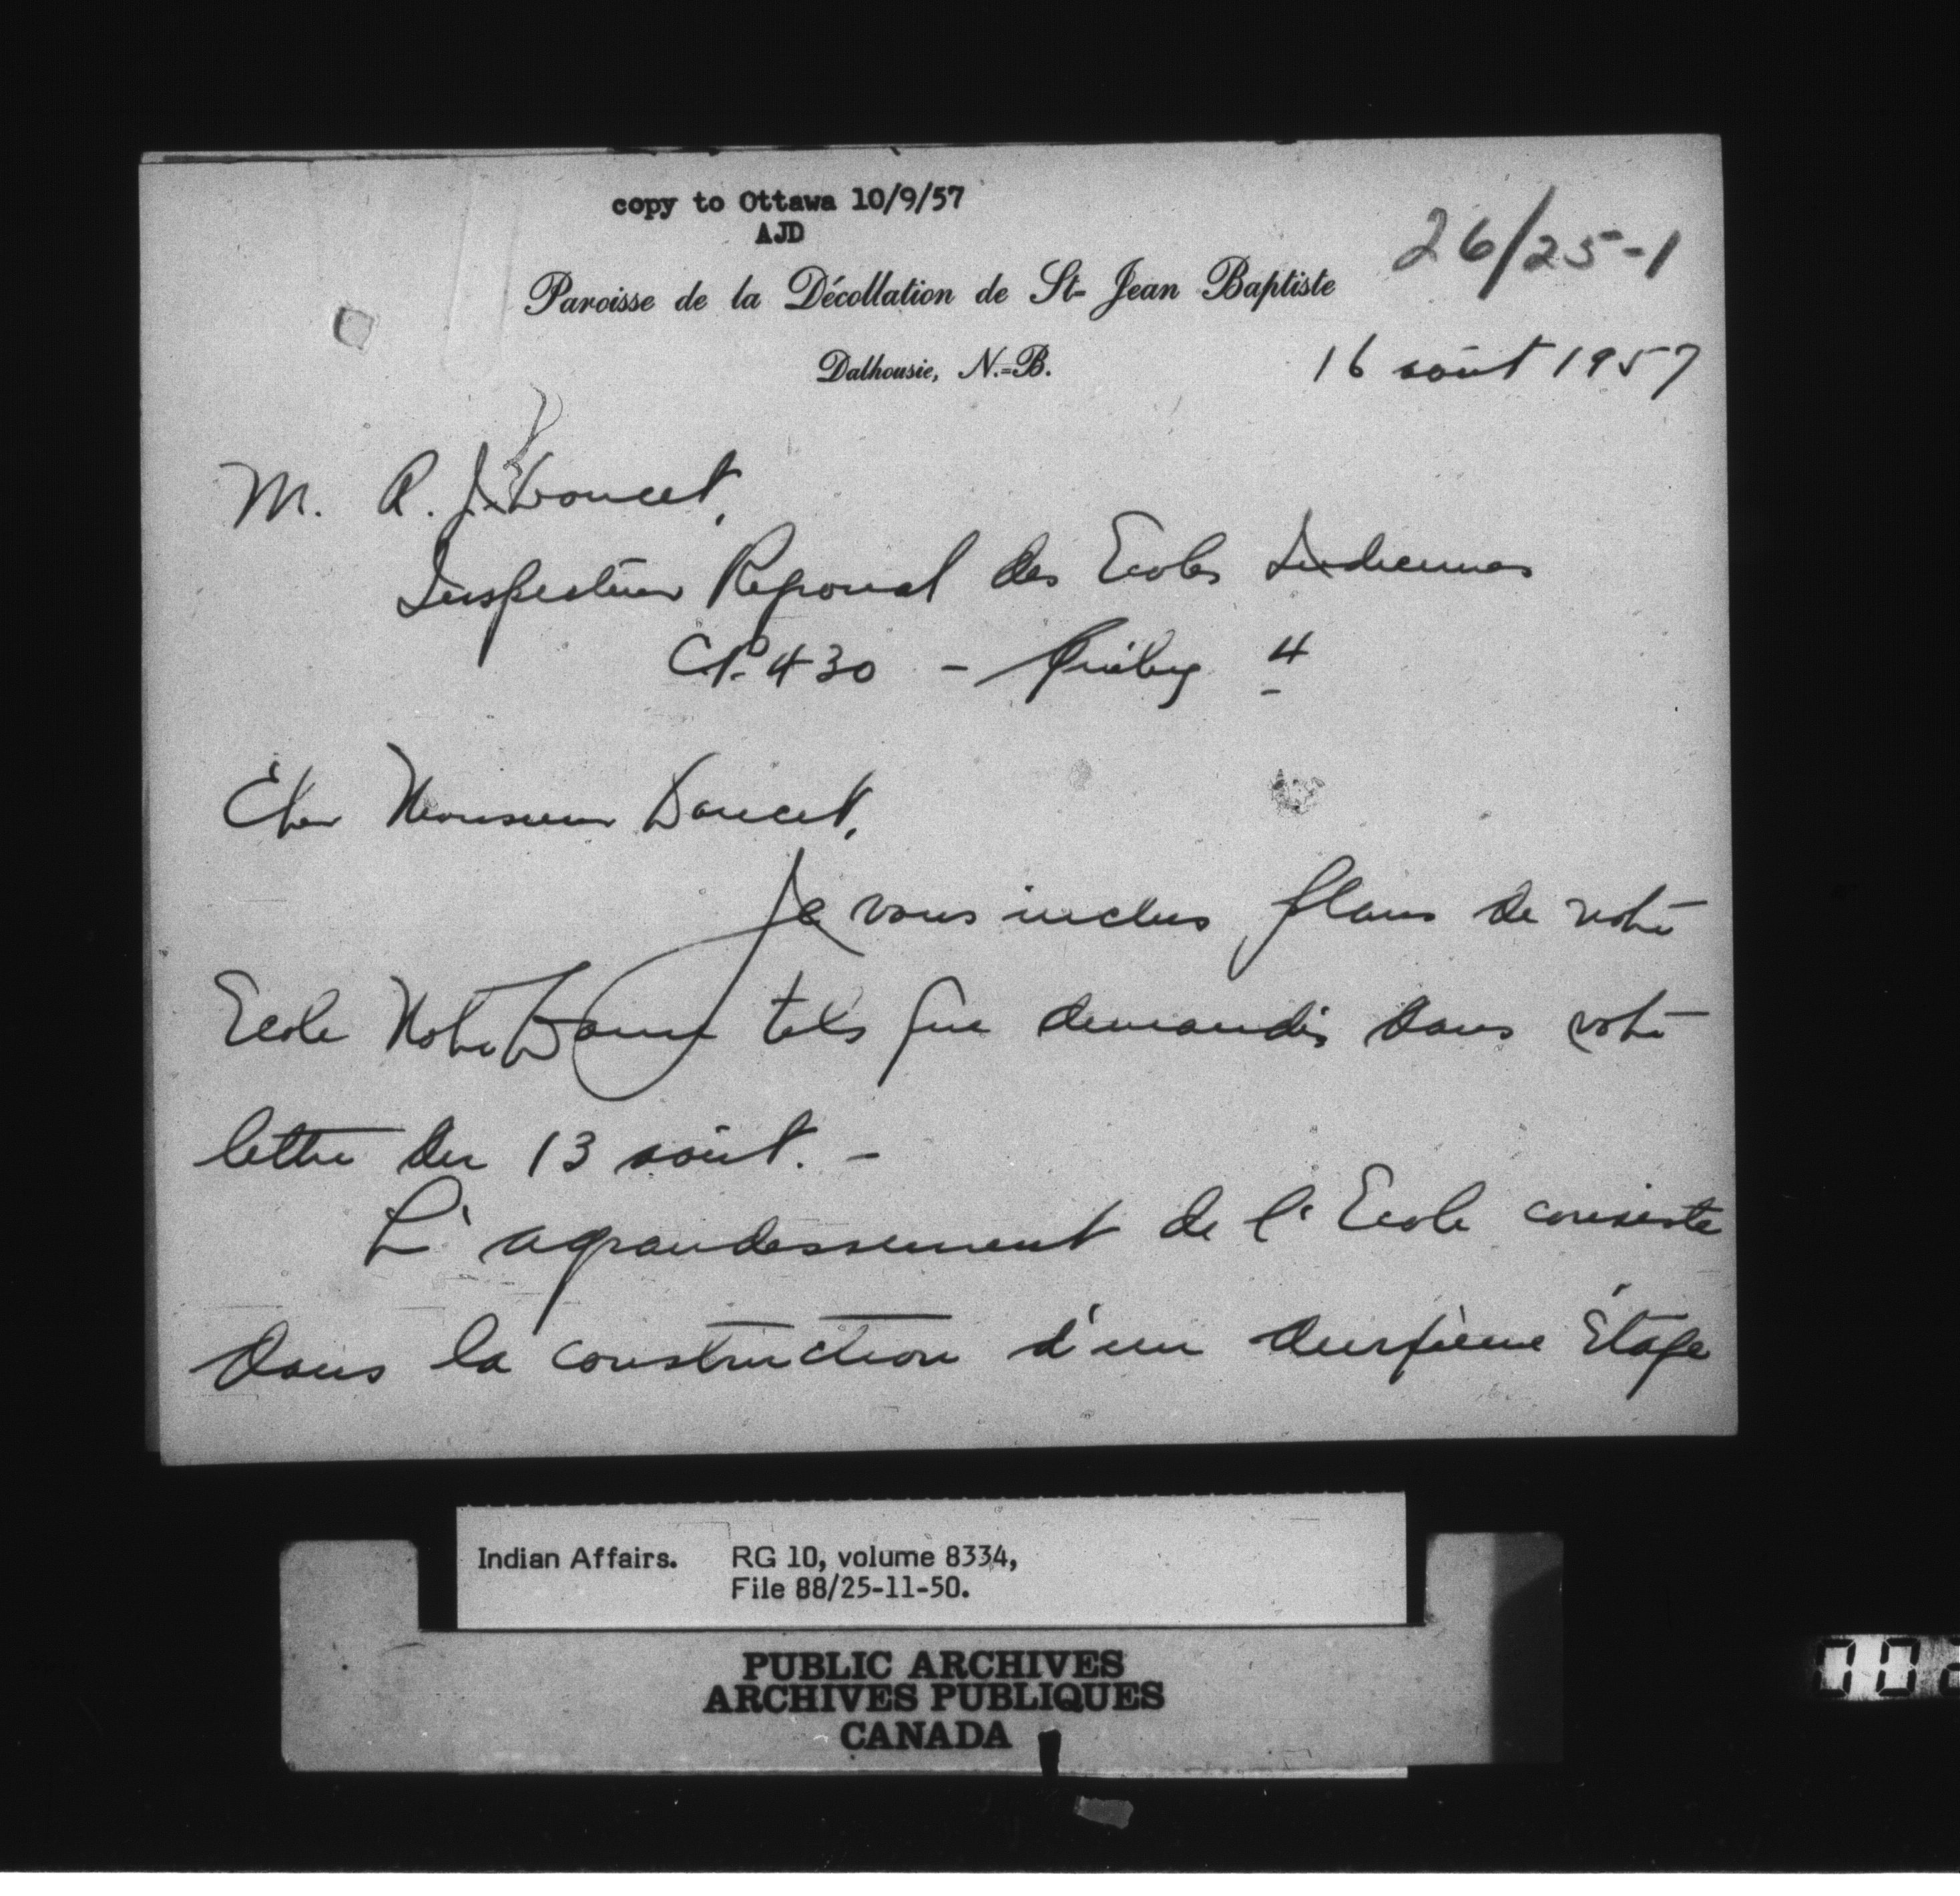 copy to Ottawa 10/9/57
AJD
26/25-1
Paroisse de la Décollation de St- Jean Baptiste
Dalhousie, N.=B.
16 août 1957
M. R. J. Doucet,
Inspecteur Regional des Ecoles Indiennes
C.P. 430 - Québec 4
Cher Monsieur Doucet,
Je vous inclus plans de notre
Ecole Notre Dame tels que demandés dans votre
lettre du 13 août. -
L'agrandissement de l'Ecole consiste
dans la construction d'un deuxième étage
Indian Affairs. RG 10, volume 8334,
File 88/25-11-50.
PUBLIC ARCHIVES
ARCHIVES PUBLIQUES
CANADA